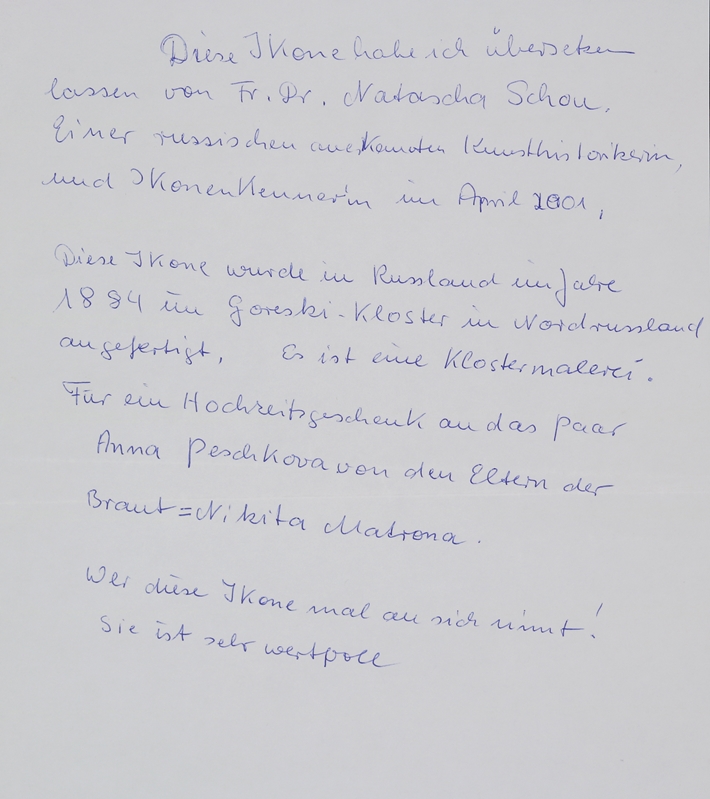 Diese Ikone habe ich übersetzen
lassen von Fr. Dr. Natascha Schou.
Einer russischen anerkannten Kunsthistorikerin,
und Ikonenkennerin im April 2001,
Diese Ikone wurde in Russland im Jahre
1884 im Goreski-Kloster in Nordrussland
angefertigt. Es ist eine Klostermalerei.
Für ein Hochzeitsgeschenk an das Paar
Anna Peschkova von den Eltern der
Braut = Nikita Matrona.
Wer diese Ikone mal an sich nimt!
Sie ist sehr wertvoll